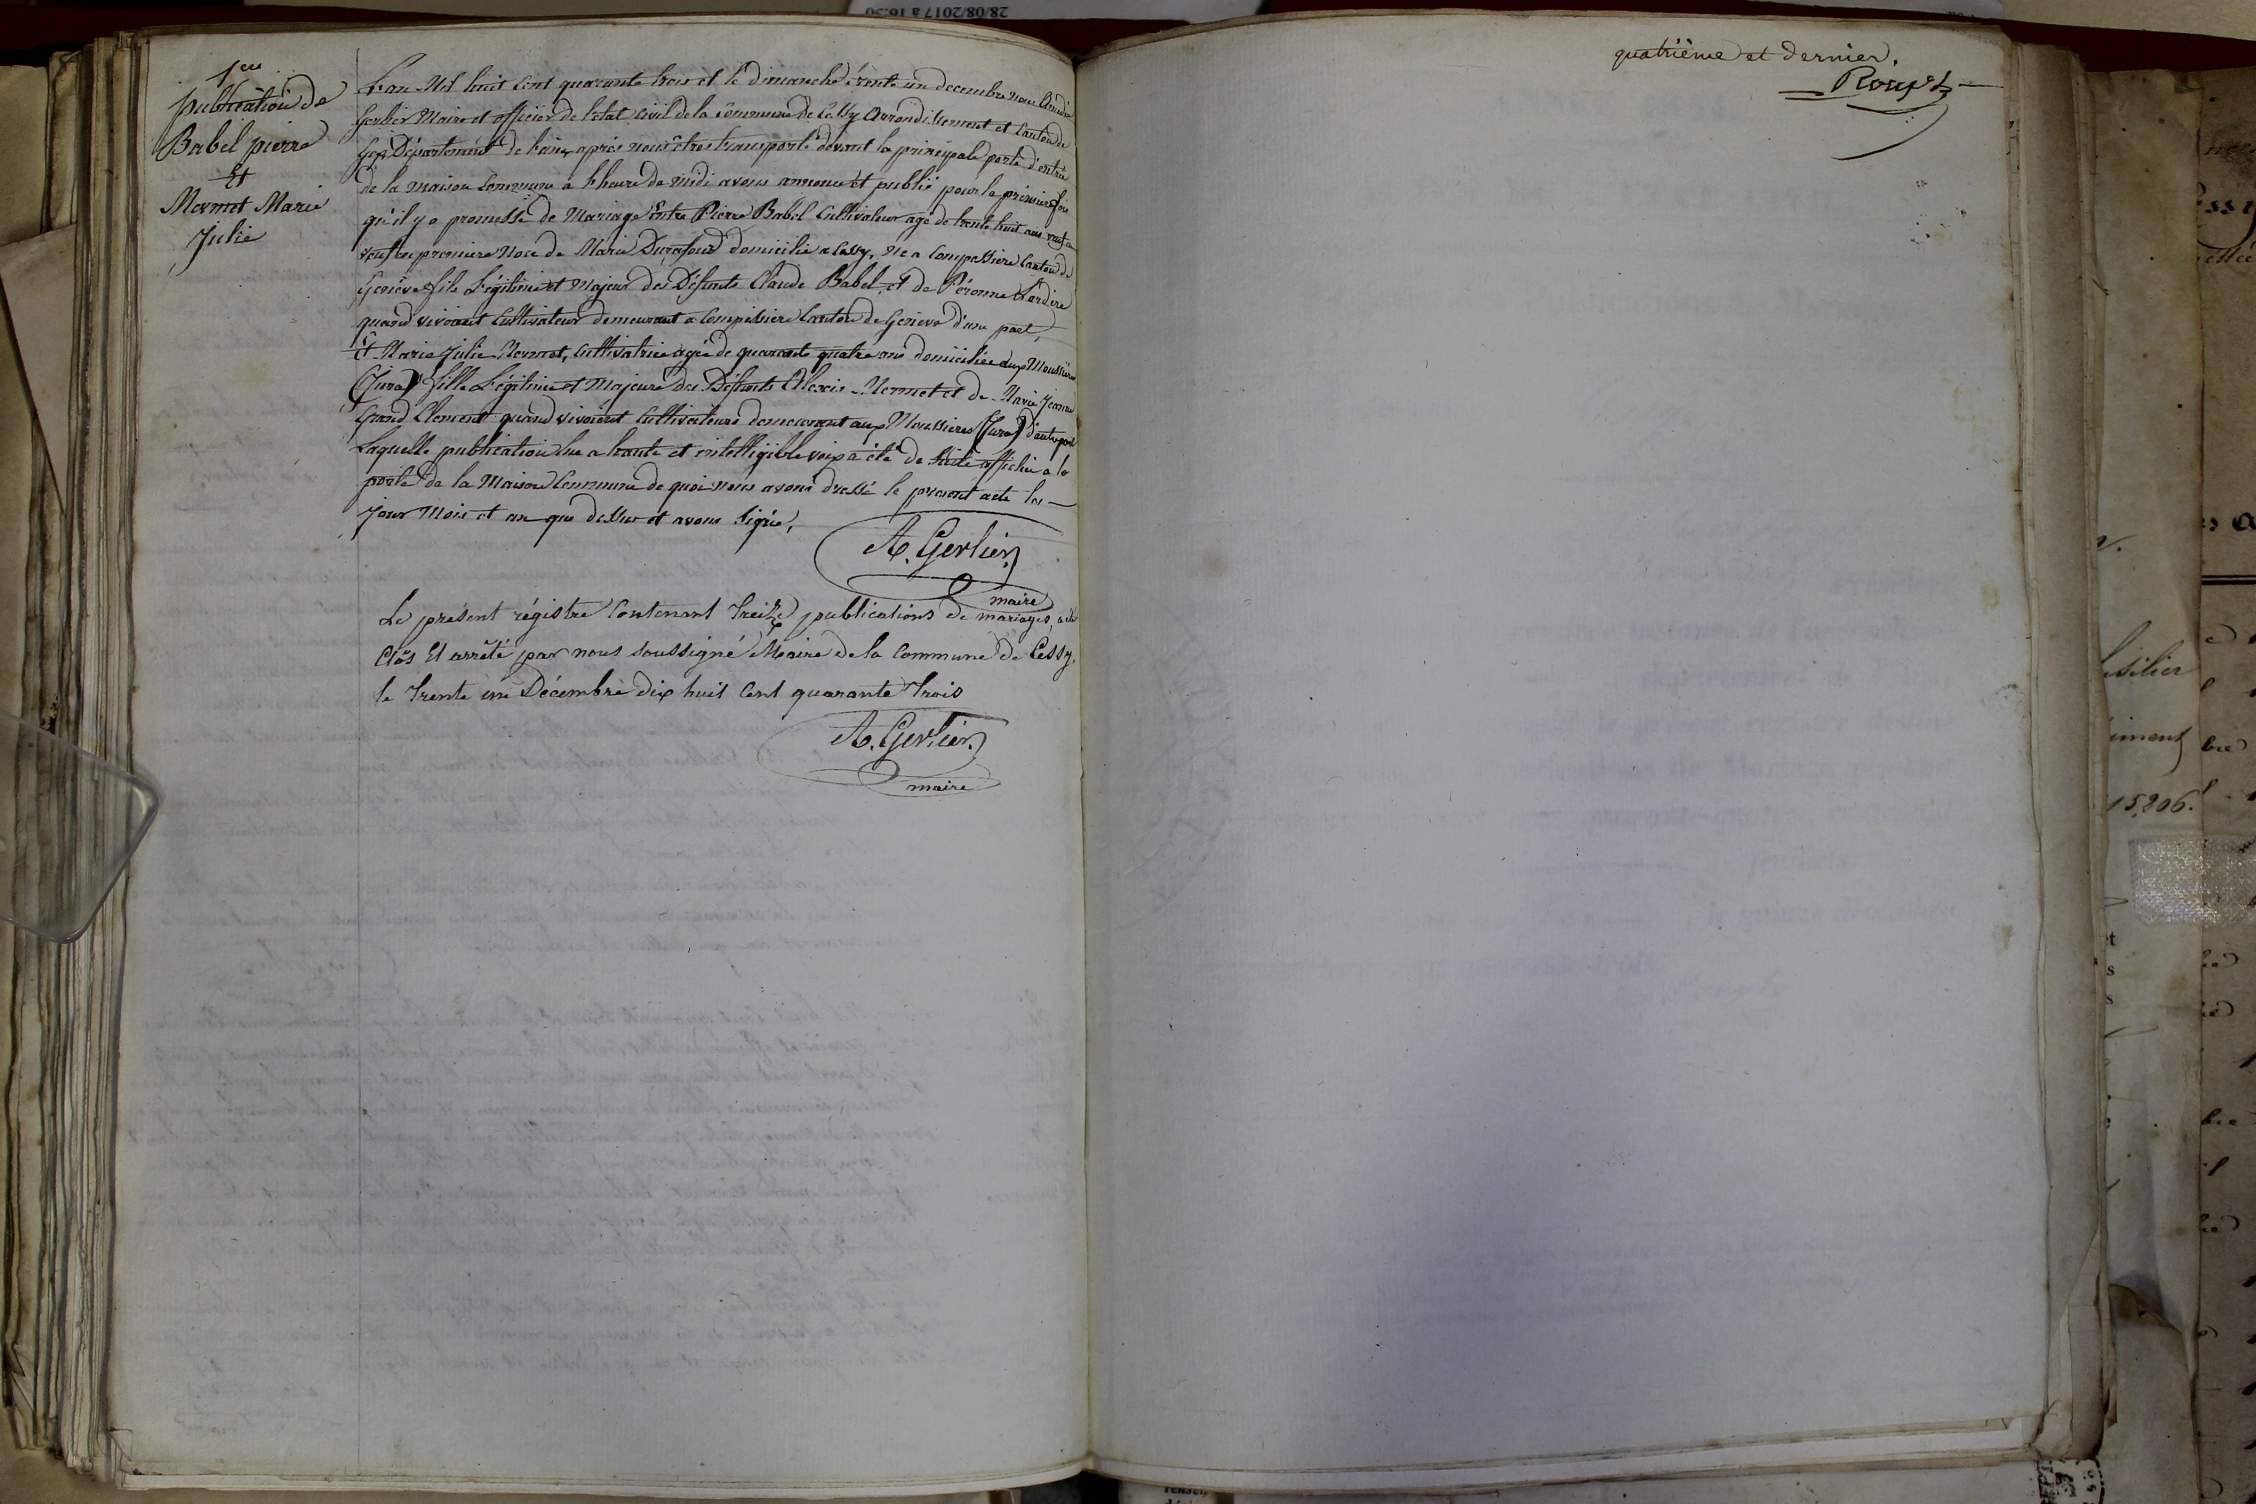 28/08/2017 à 16:50
1ere
publication de
Babel pierre
Et
Mermet Marie
Julie
L'an Mil huit Cent quarante trois et le dimanche trente un decembre nous
Gerlier Maire et officier de l'etat civil de la Commune de Cessy Arrondissement et Canton de
Gex Département de l'ain, après nous être transporté devant la principale porte d'entrée
de la maison Commune a l'heure de midi avons annoncé et publié pour la première fois
qu'il y a promesse de Mariage Entre Pierre Babel Cultivateur agé de trente huit ans
premiere Noce de Marie domicilié a Cessy, né a Compessiere Canton de
Genève fils Légitime et Majeur des Défunts Claude Babel, et de Péronne
quand vivoient Cultivateur demeurant a Compessiere Canton de Geneve d'une part,
Et Marie Julie Mermet, Cultivatrice agée de quarante quatre ans domiciliée aux Moussieres
(Jura) fille Légitime et Majeure des Défunts Alexis Mermet et de Marie Jeanne
Grand Clement quand vivoient Cultivateurs demeurant aux Moussieres (Jura) d'autre part
Laquelle publication lue a haute et intelligible voix a été de suite affichée a la
porte de la Maison Commune de quoi nous avons dressé le present acte les
jour Mois et an que dessus et avons Signé,
A. Gerlier
maire
Le présent régistre Contenant treize publications de mariages, a été
Clôs Et arrêté par nous soussigné Maire de la Commune de Cessy,
le trente un Décembre dix huit Cent quarante trois
A. Gerlier
maire
quatrième et dernier.
15,206.